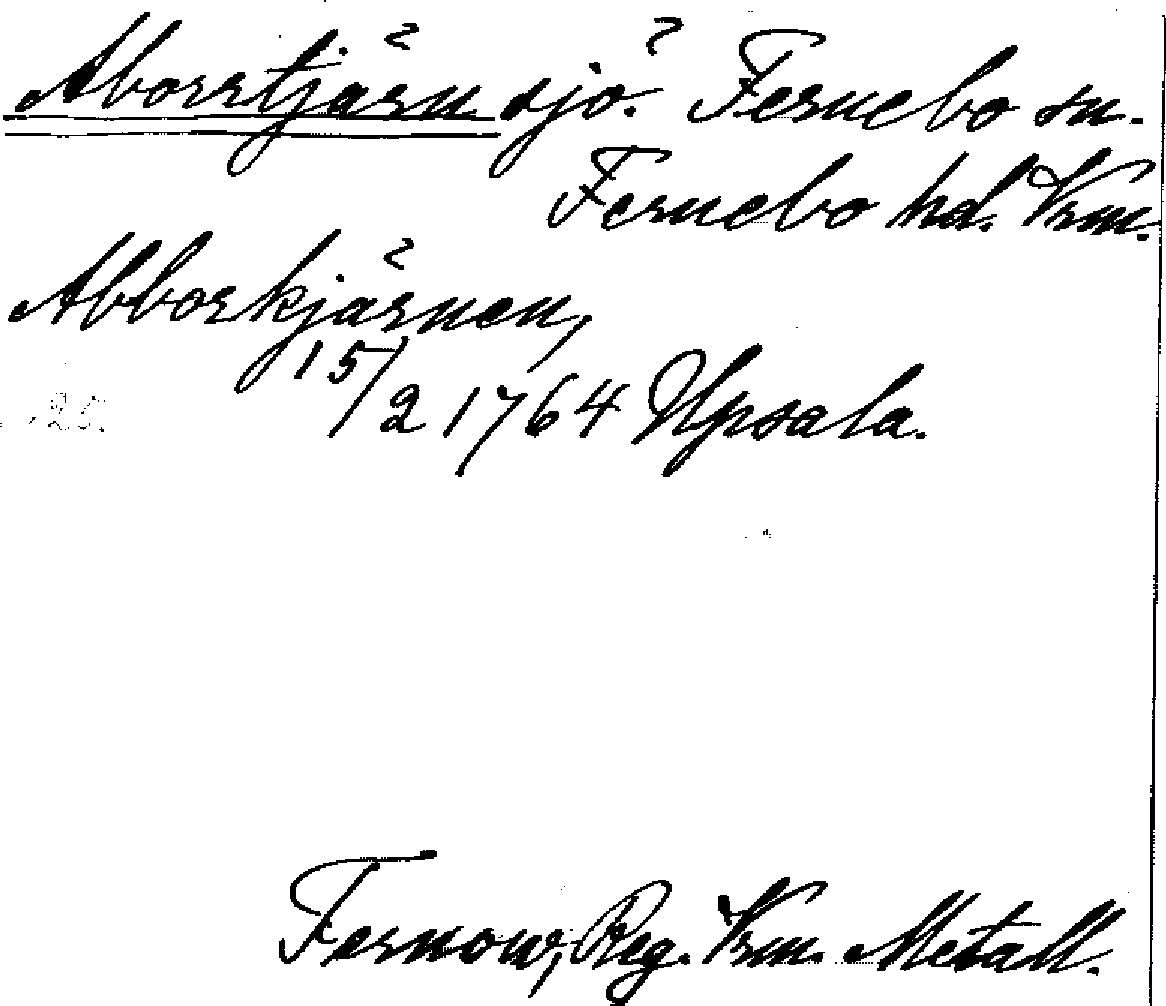 Aborrtjärn sjö. Fernebo sn.
Fernebo hd. Vrm.
Abborkjärnen,
15/2 1764 Upsala.
Fernow, Reg. Vrm. Metall.